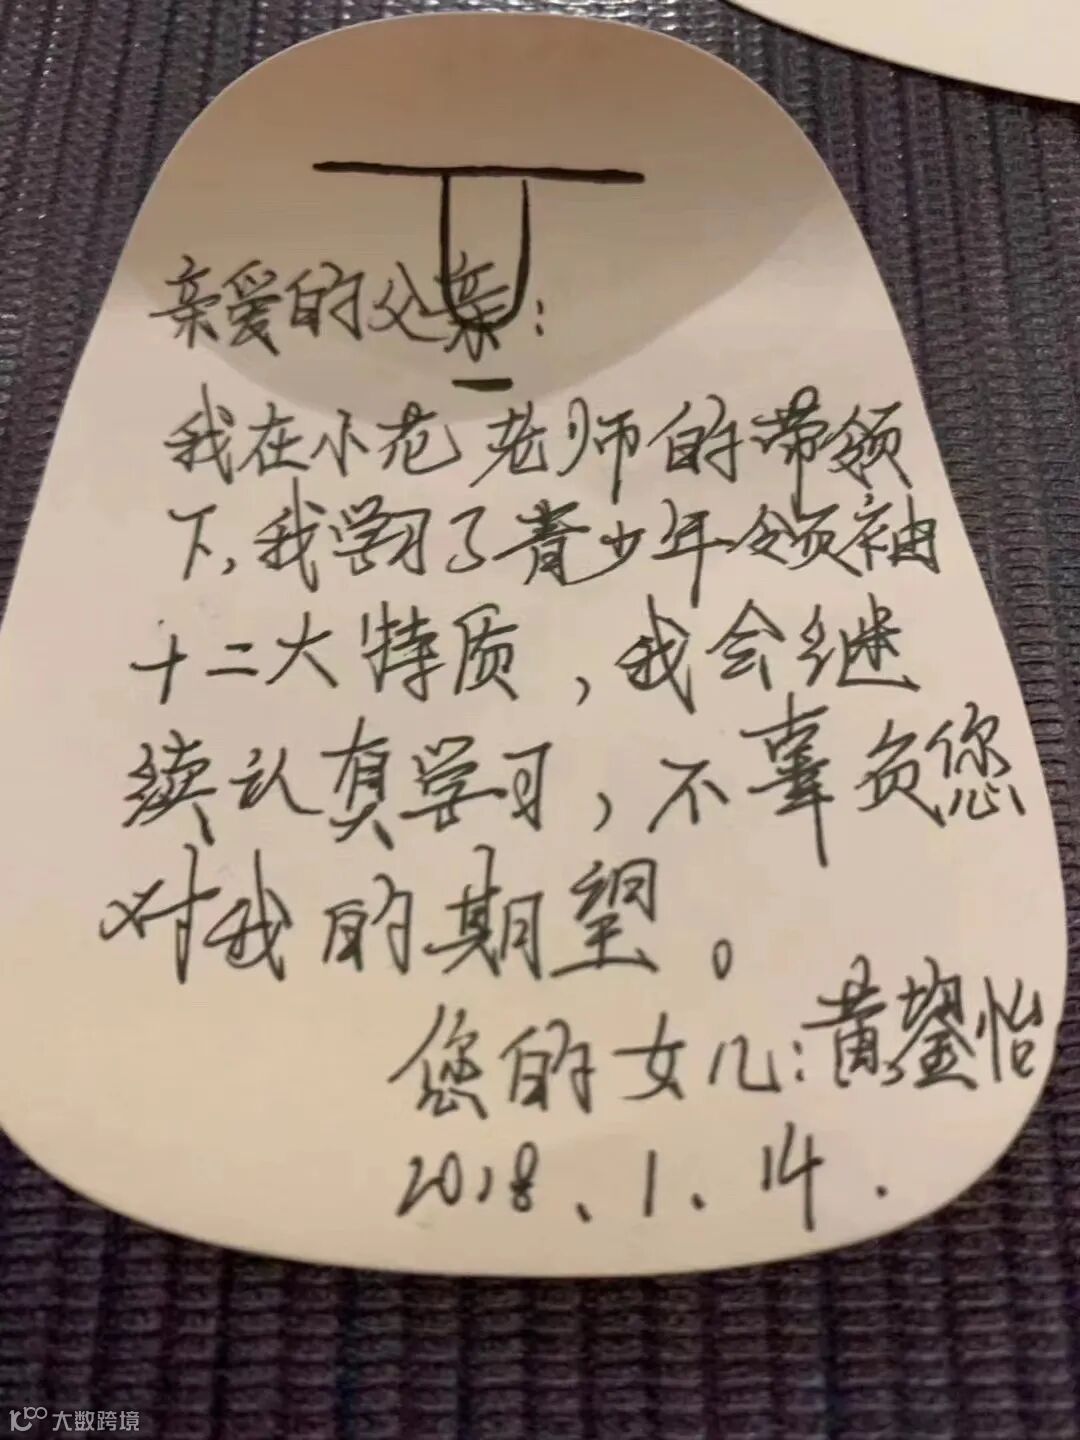 亲爱的父亲：
我在小花老师的带领
下，我学习了青少年领袖
十二大特质，我会继
续认真学习，不辜负您
对我的期望。
您的女儿：黄鋆怡
2018、1、14.
大数跨境